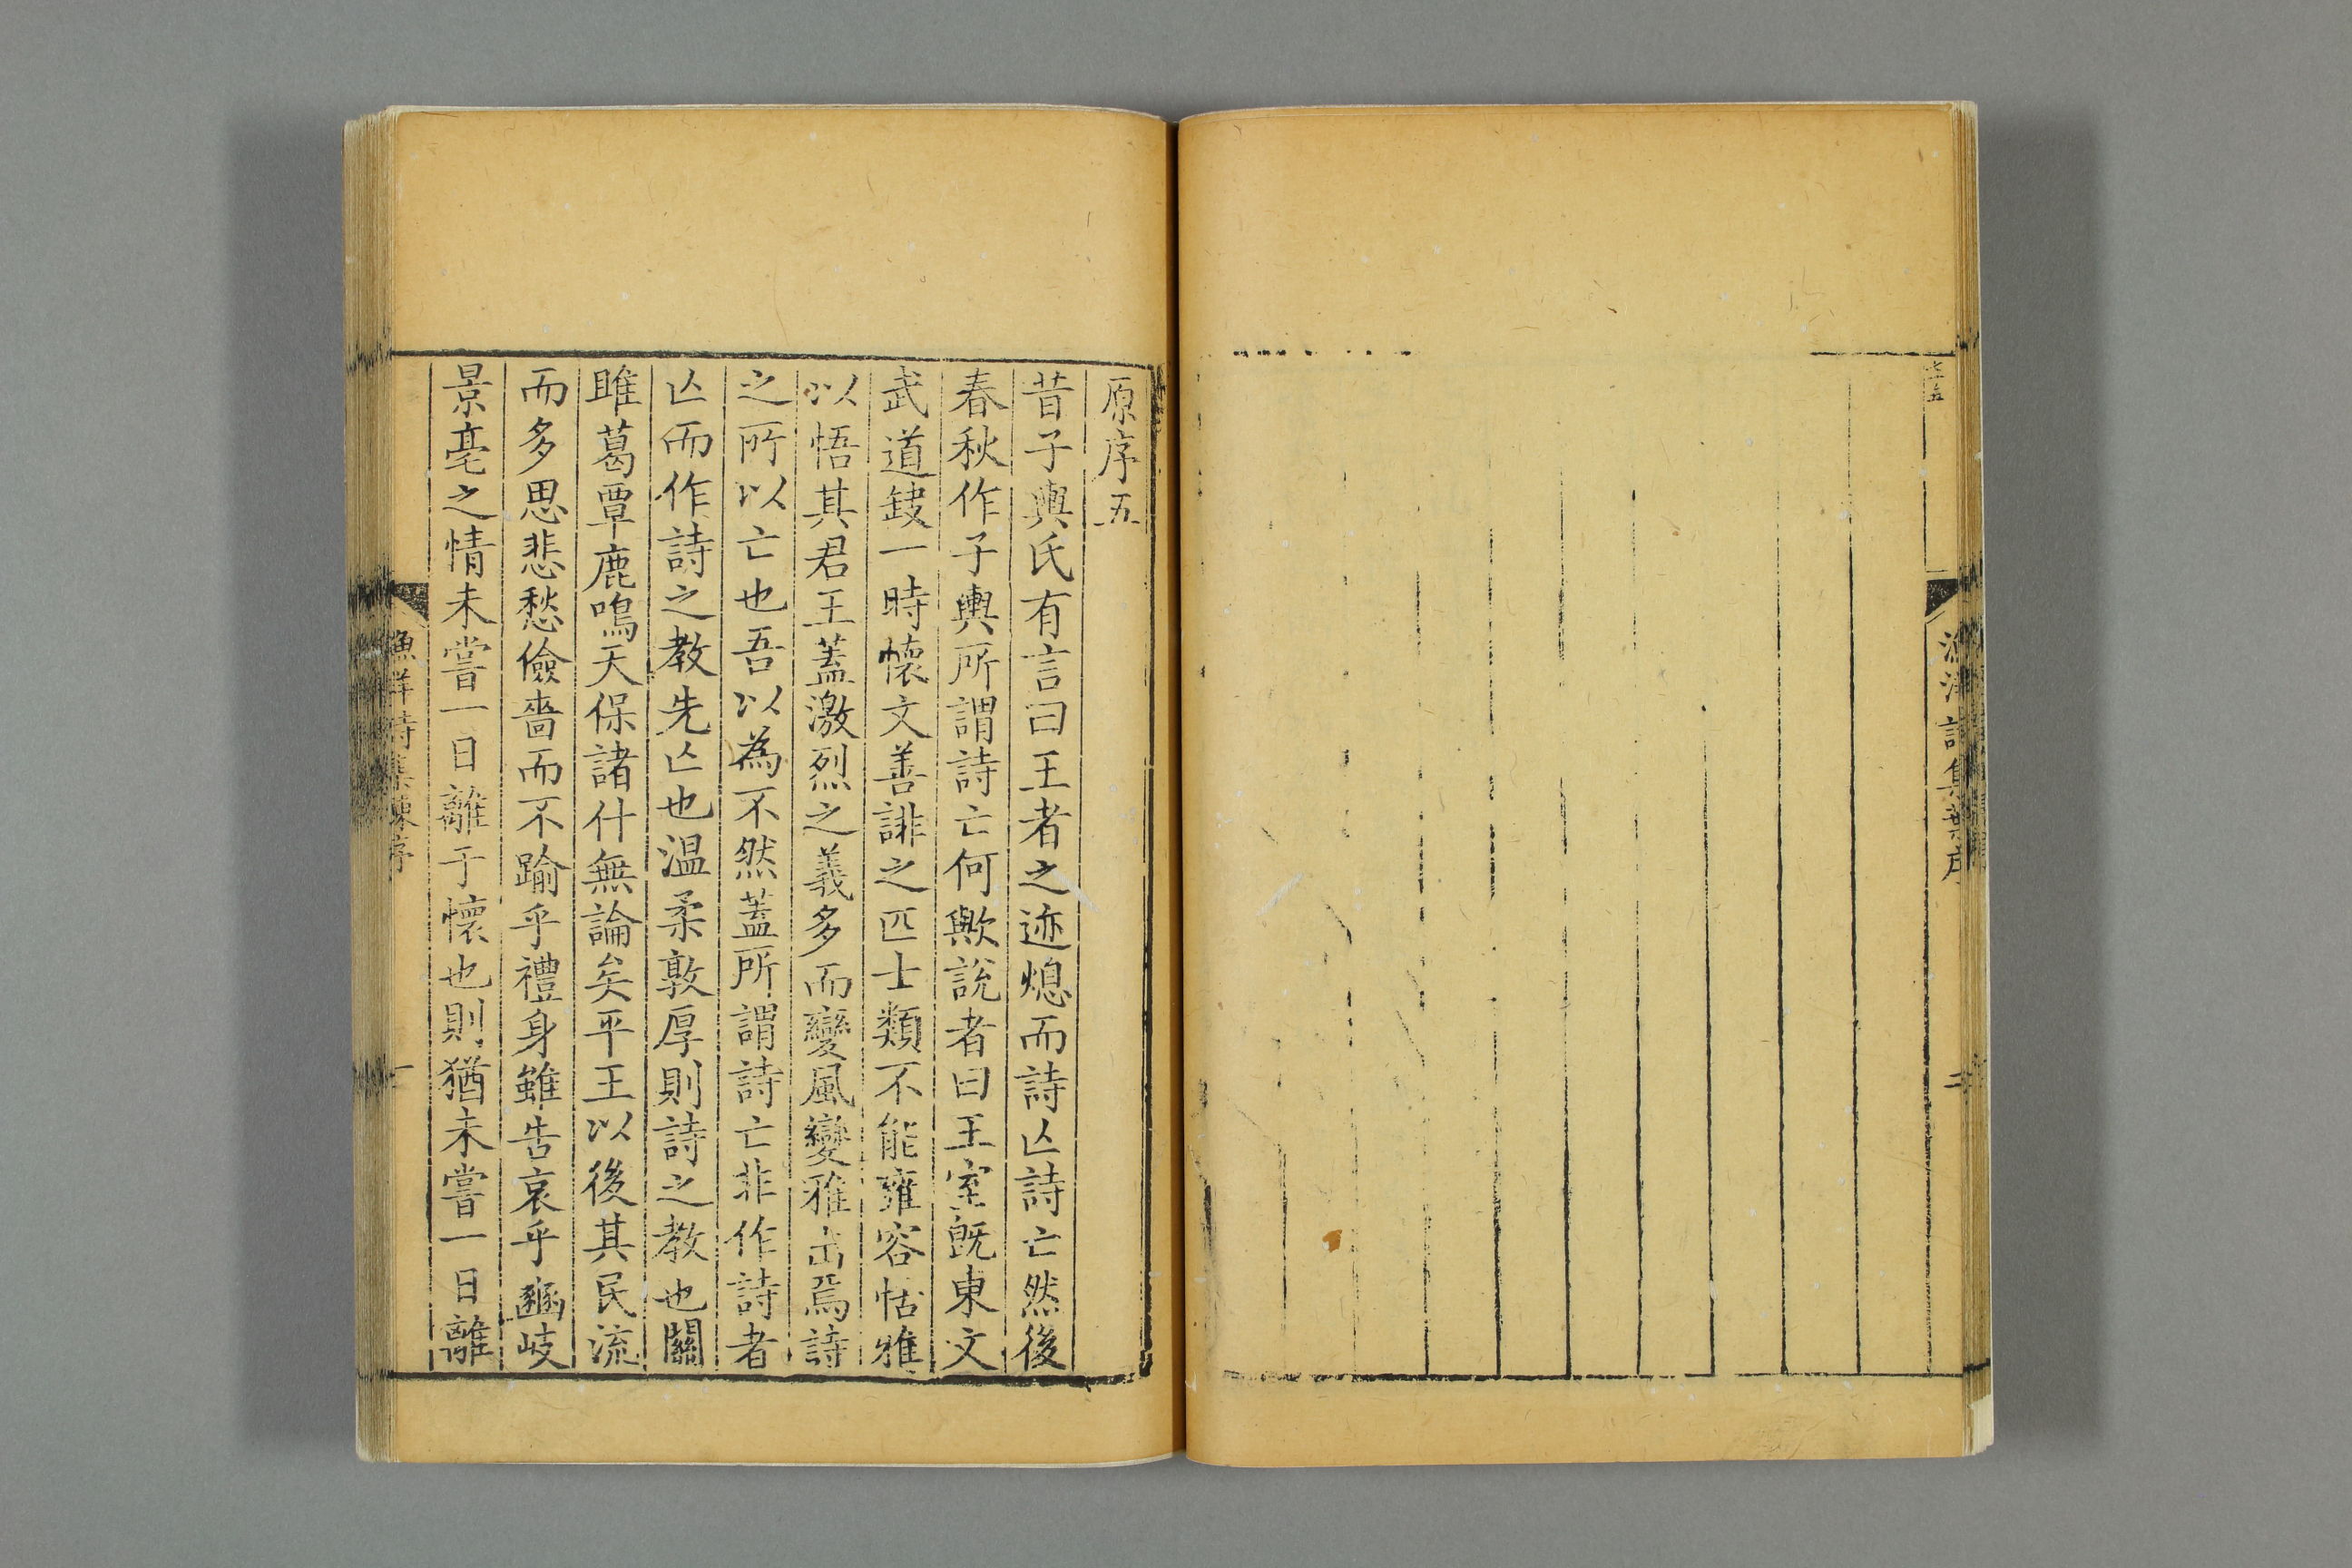 漁洋詩集葉序
二
原序五
昔子輿氏有言曰王者之迹熄而詩亾詩亡然後
春秋作子輿所謂詩亡何歟說者曰王室旣東文
武道䤋一時懷文善誹之匹士類不能雍容恬雅
以悟其君王蓋激烈之義多而變風變雅出焉詩
之所以亡也吾以為不然蓋所謂詩亡非作詩者
亾而作詩之教先亾也温柔敦厚則詩之教也關
雎葛覃鹿鳴天保諸什無論矣平王以後其民流
而多思悲愁儉嗇而不踰乎禮身雖告哀乎豳岐
景亳之情未嘗一日離于懷也則猶未嘗一日離
漁洋詩集陳序
一